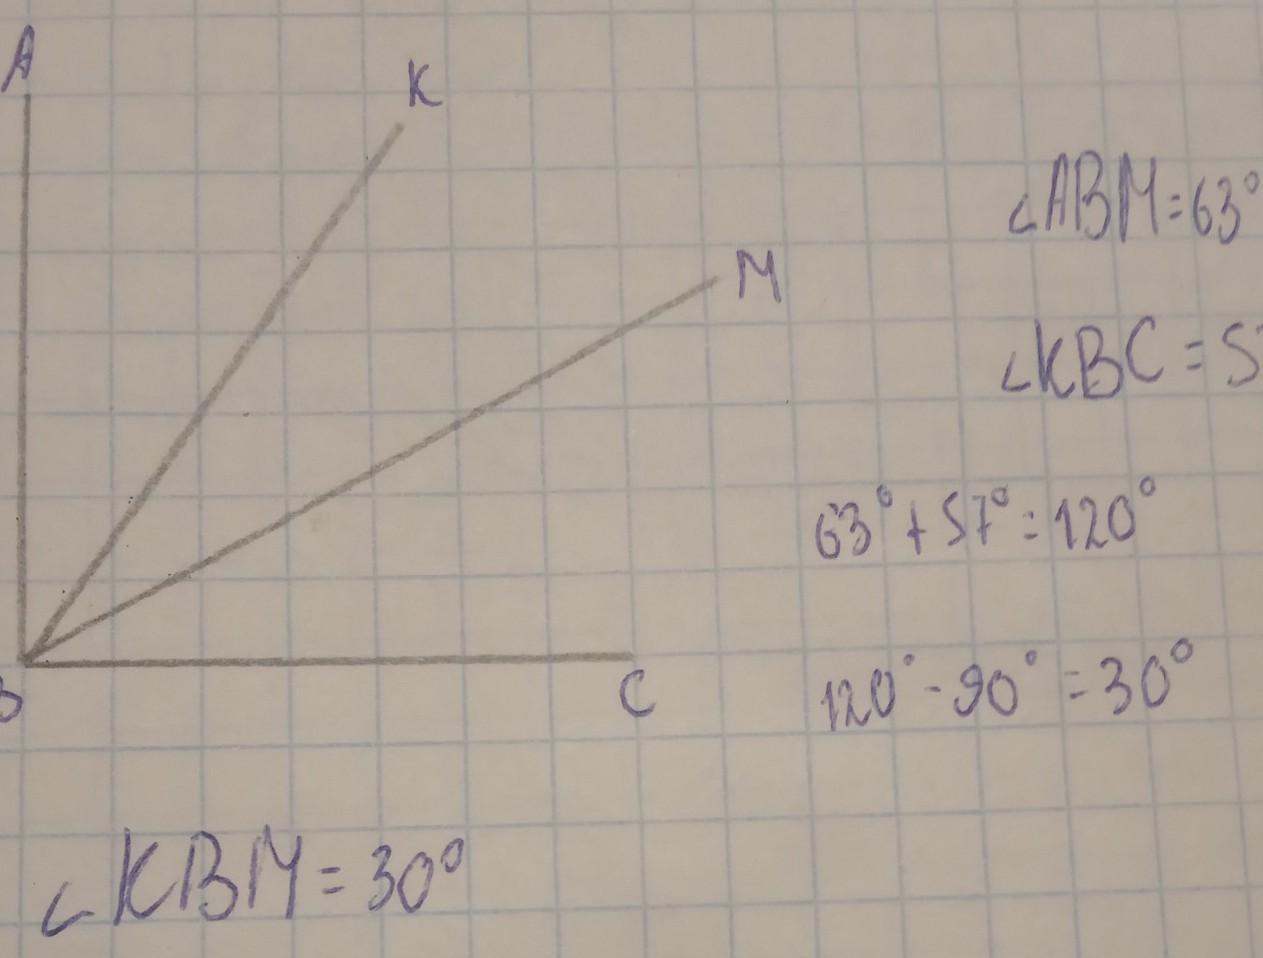 A
K
M
∠ABM=63°
∠KBC=5
63°+57°=120°
C
120°-90°=30°
∠KBM=30°